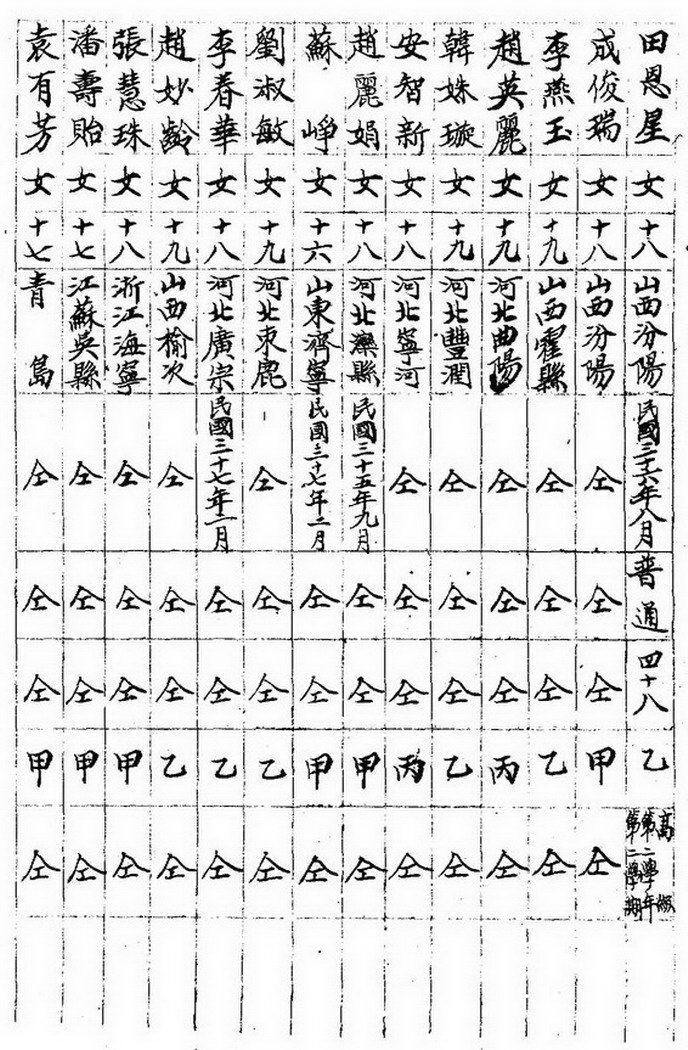 田恩星 女 十八 山西汾陽 民國三十六年八月 普通 四十八 乙 高級第二學年第二學期
成俊瑞 女 十八 山西汾陽 仝 仝 仝 甲 仝
李燕玉 女 十九 山西霍縣 仝 仝 仝 乙 仝
趙英麗 女 十九 河北曲陽 仝 仝 仝 丙 仝
韓姝璇 女 十九 河北豐潤 仝 仝 仝 乙 仝
安智新 女 十八 河北寧河 仝 仝 仝 丙 仝
趙麗娟 女 十八 河北灤縣 民國三十五年九月 仝 仝 甲 仝
蘇崢 女 十六 山東濟寧 民國三十七年二月 仝 仝 甲 仝
劉淑敏 女 十九 河北束鹿 仝 仝 仝 乙 仝
李春華 女 十八 河北廣宗 民國三十七年二月 仝 仝 乙 仝
趙妙齡 女 十九 山西榆次 仝 仝 仝 乙 仝
張慧珠 女 十八 浙江海寧 仝 仝 仝 甲 仝
潘壽貽 女 十七 江蘇吳縣 仝 仝 仝 甲 仝
袁有芳 女 十七 青島 仝 仝 仝 甲 仝